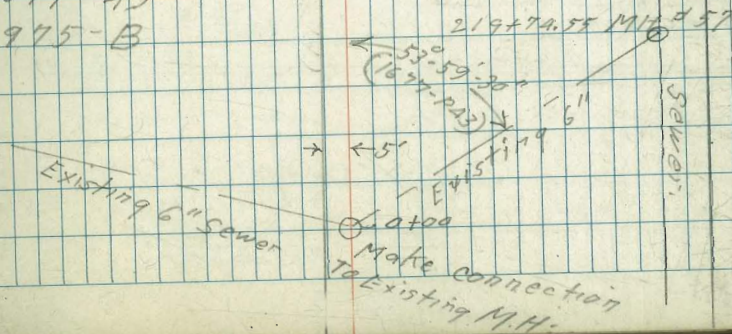 219+74.55 MH #57
975-B
53°-59'-30"
(1677-P23)
6"
Existing
Sewer.
5'
Existing 6" Sewer
0+00
Make connection
To Existing M.H.